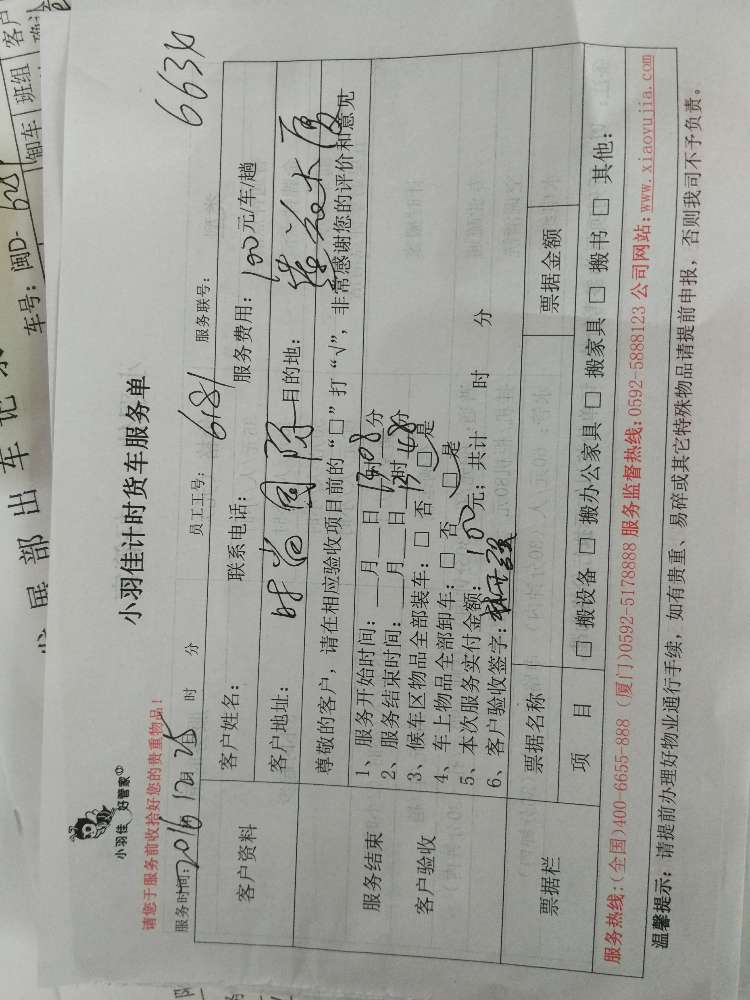 发展部出车记录
车号：闽D-
卸车
班组
客户
小羽佳
好管家
小羽佳计时货车服务单
663X
请您于服务前收拾好您的贵重物品！
服务时间：2016 12月25日 时 分 员工工号：6181 服务联号：
客户资料
客户姓名： 联系电话： 服务费用：100元/车/趟
客户地址：时尚国际 目的地：
尊敬的客户，请在相应验收项目前的“□”打“√”，非常感谢您的评价和意见
服务结束
客户验收
1、服务开始时间：__月__日17时08分
2、服务结束时间：__月__日17时48分
3、候车区物品全部装车：□ 否 □ 是
4、车上物品全部卸车：□ 否 □ 是
5、本次服务实付金额：100元；共计 时 分
6、客户验收签字：
票据栏
票据名称 票据金额
项 目 □ 搬设备 □ 搬办公家具 □ 搬家具 □ 搬书 □ 其他：
服务热线：(全国)400-6655-888 (厦门)0592-5178888 服务监督热线：0592-5888123 公司网站：www.xiaoyujia.com
温馨提示：请提前办理好物业通行手续，如有贵重、易碎或其它特殊物品请提前申报，否则我司不予负责。